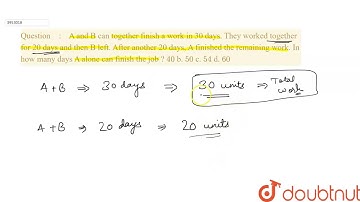 Question : A and B can together finish a work in 30 days. They worked together
for 20 days and then B left. After another 20 days, A finished the remaining work. In
how many days A alone can finish the job ? 40 b. 50 c. 54 d. 60
A + B ⇒ 30 days ⇒ 30 units ⇒ Total work
A + B ⇒ 20 days ⇒ 20 units
doubtnut